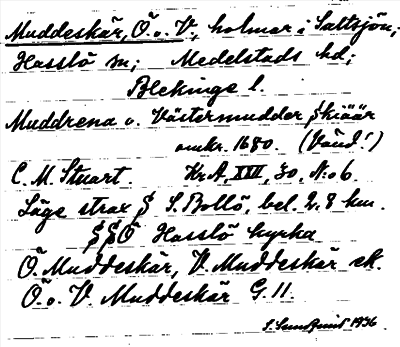 Muddeskär, Ö. o. V., holmar i Saltsjön;
Hasslö sn; Medelstads hd;
Blekinge l.
Muddrena o. Västermudder skiäär
omkr. 1680 (Vänd!)
C. M. Stuart. Kr.A, XVI, 30, N:o 6.
Läge strax S S. Bollö, bel. 2,8 km.
SSÖ Hasslö kyrka
Ö. Muddeskär, V. Muddeskär ek.
Ö. o. V. Muddeskär G. 11.
1936